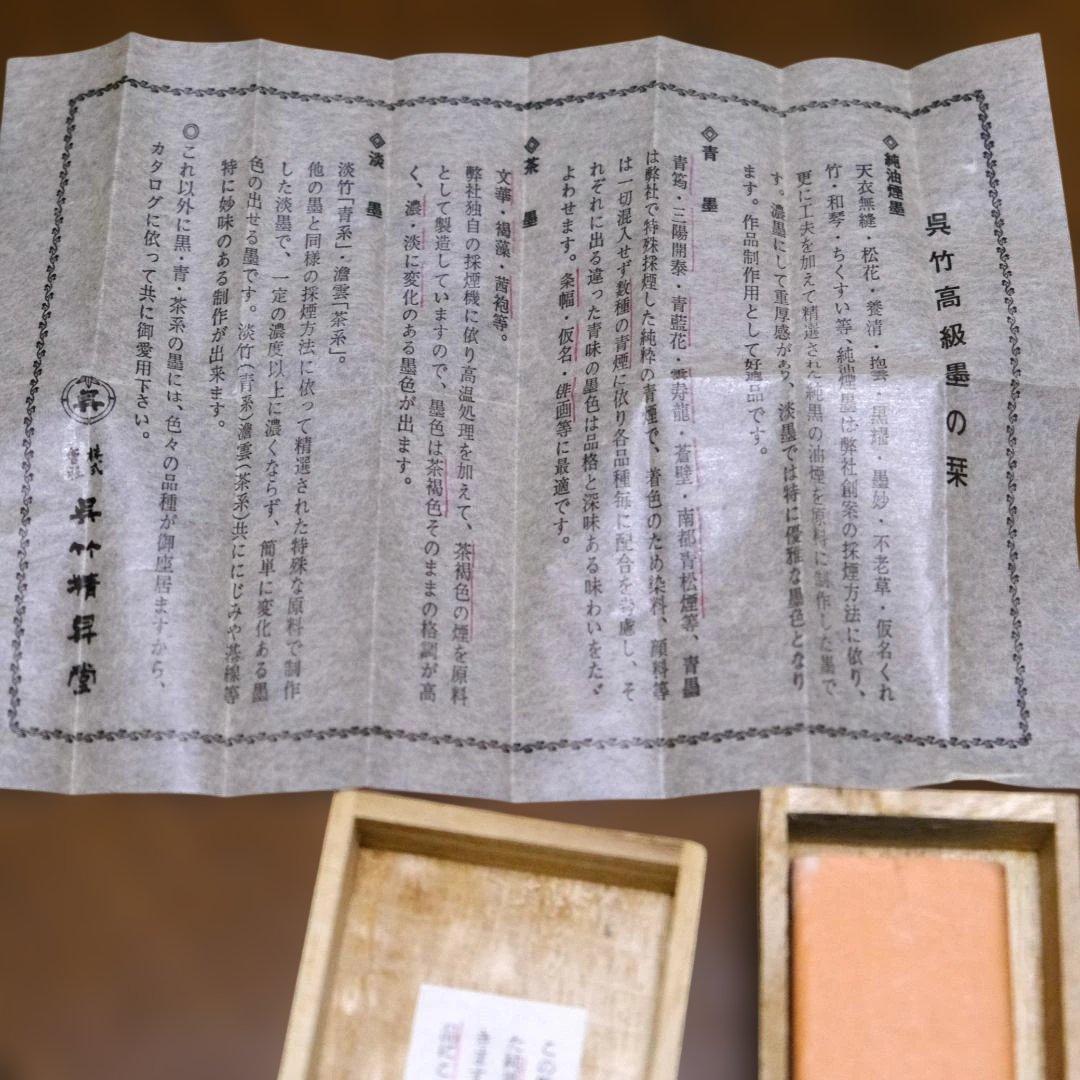 呉竹高級墨の栞
◇純油煙墨
天衣無縫・松花・養清・抱雲・黒耀・墨妙・不老草・仮名くれ
竹・和琴・ちくすい等、純油煙墨は、弊社創案の採煙方法に依り、
更に工夫を加えて精選された純黒の油煙を原料に制作した墨で
す。濃墨にして重厚感があり、淡墨では特に優雅な墨色となり
ます。作品制作用として好適品です。
◇青墨
青筠・三陽開泰・青藍花・雲寿龍・蒼壁・南都青松煙等、青墨
は弊社で特殊採煙した純粋の青煙で、着色のため染料、顔料等
は一切混入せず数種の青煙に依り各品種毎に配合を考慮し、そ
れぞれに出る違った青味の墨色は品格と深味ある味わいをただ
よわせます。条幅・仮名・俳画等に最適です。
◇茶墨
文華・褐藻・茜袍等。
弊社独自の採煙機に依り高温処理を加えて、茶褐色の煙を原料
として製造していますので、墨色は茶褐色そのままの格調が高
く、濃・淡に変化のある墨色が出ます。
◇淡墨
淡竹「青系」・澹雲「茶系」。
他の墨と同様の採煙方法に依って精選された特殊な原料で制作
した淡墨で、一定の濃度以上に濃くならず、簡単に変化ある墨
色の出せる墨です。淡竹(青系)澹雲(茶系)共ににじみや基線等
特に妙味のある制作が出来ます。
◎これ以外に黒・青・茶系の墨には、色々の品種が御座居ますから、
カタログに依って共に御愛用下さい。
呉 株式会社 呉竹精昇堂
この
た
きます